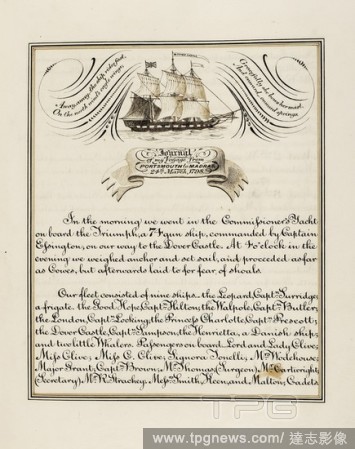 Away, away, the ship rides fast,
On the north wind's eagle wings;
Gracefully she bears her mast,
Journal
of my Voyage from
PORTSMOUTH to MADRAS
24th March, 1798.
In the morning we went in the Commissioner's Yacht
on board the Triumph, a 74 gun ship, commanded by Captain
Essington, on our way to the Dover Castle. At 4 o'clock in the
evening we weighed anchor and set sail, and proceeded as far
as Cowes, but afterwards laid to for fear of shoals.
Our fleet consisted of nine ships - the Leopard, Captn. Surridge;
a frigate, the Good Hope, Captn. Hilton; the Walpole, Captn. Butler;
the London, Captn. Locking; the Princess Charlotte, Captn. Prescott;
the Dover Castle, Captn. Sampson; the Henrietta, a Danish ship;
and two little Whalers. Passengers on board - Lord and Lady Clive;
Miss Clive; Miss C. Clive; Signora Tonelli; Mr. Wodehouse;
Major Grant; Captn. Brown; Mr. Thomas (Surgeon); Mr. Cartwright
(Secretary); Mr. R. Strachey; Messrs. Smith, Keen, and Malton, Cadets
TPG
www.tpgnews.com / 達志影像